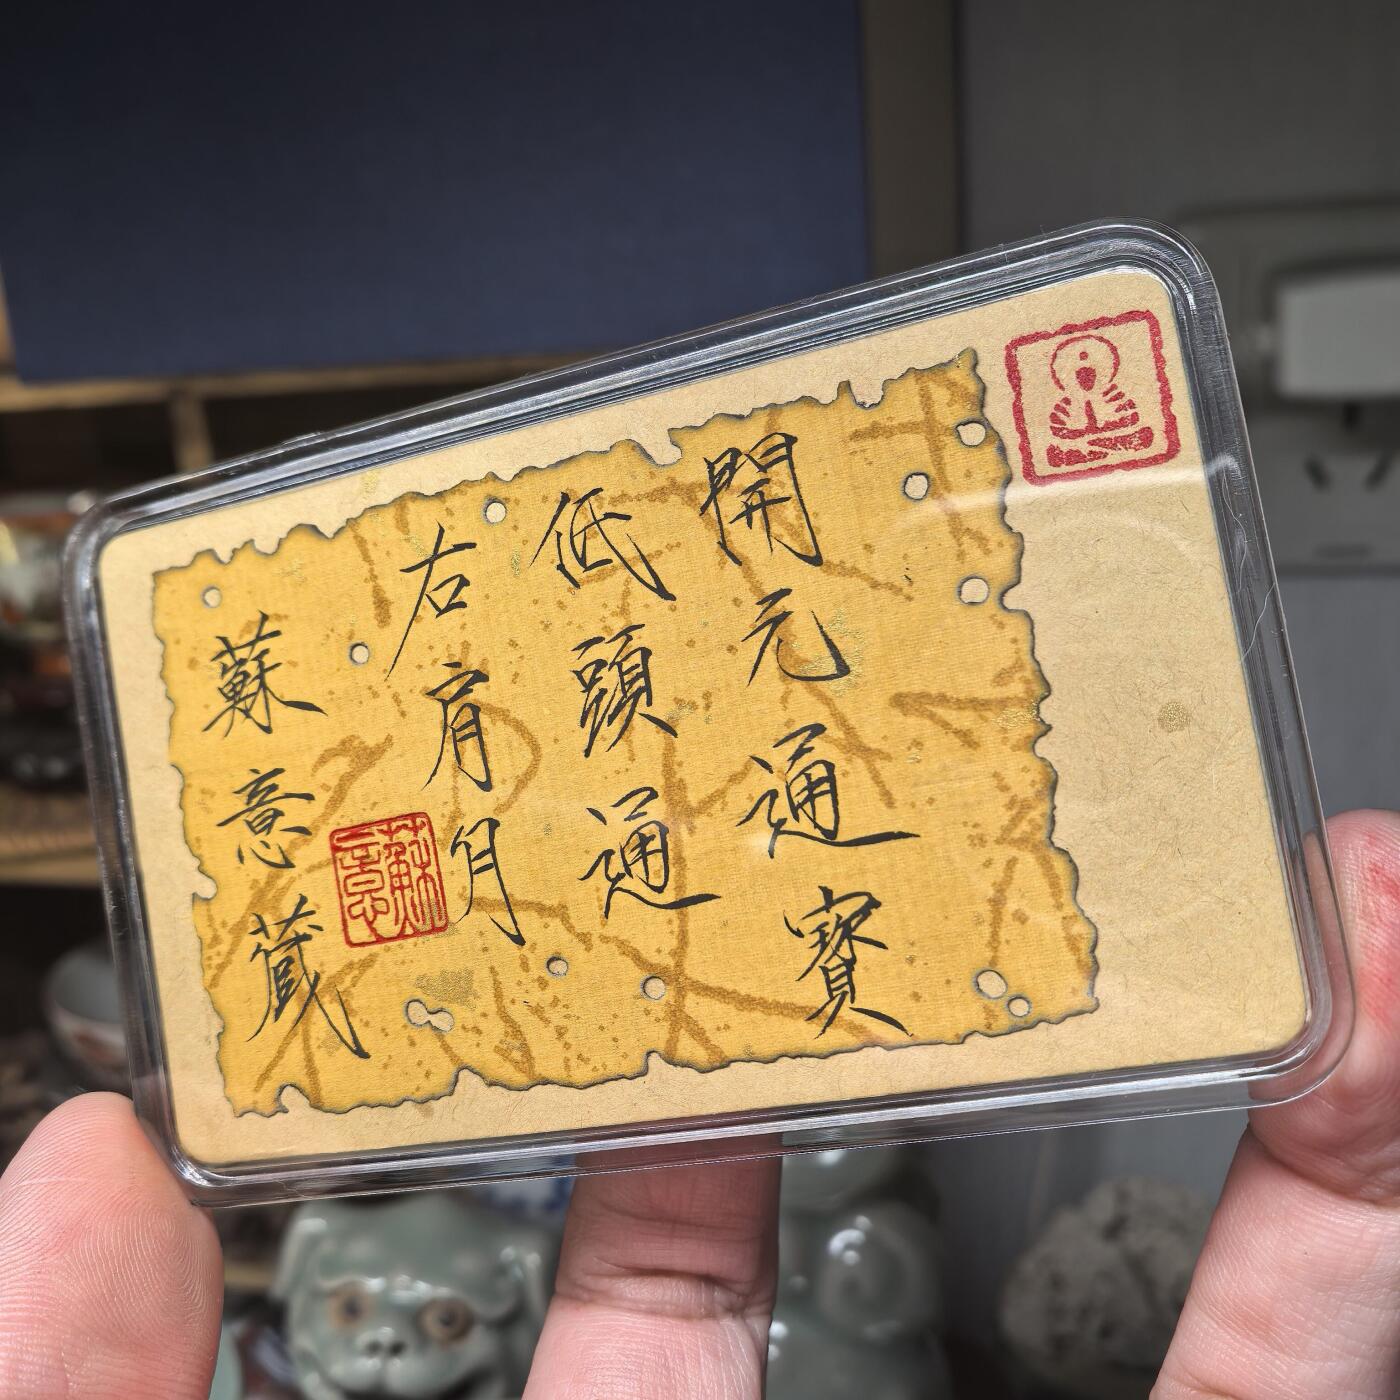 開元通寶
低頭通
右肩月
蘇意藏
蘇意